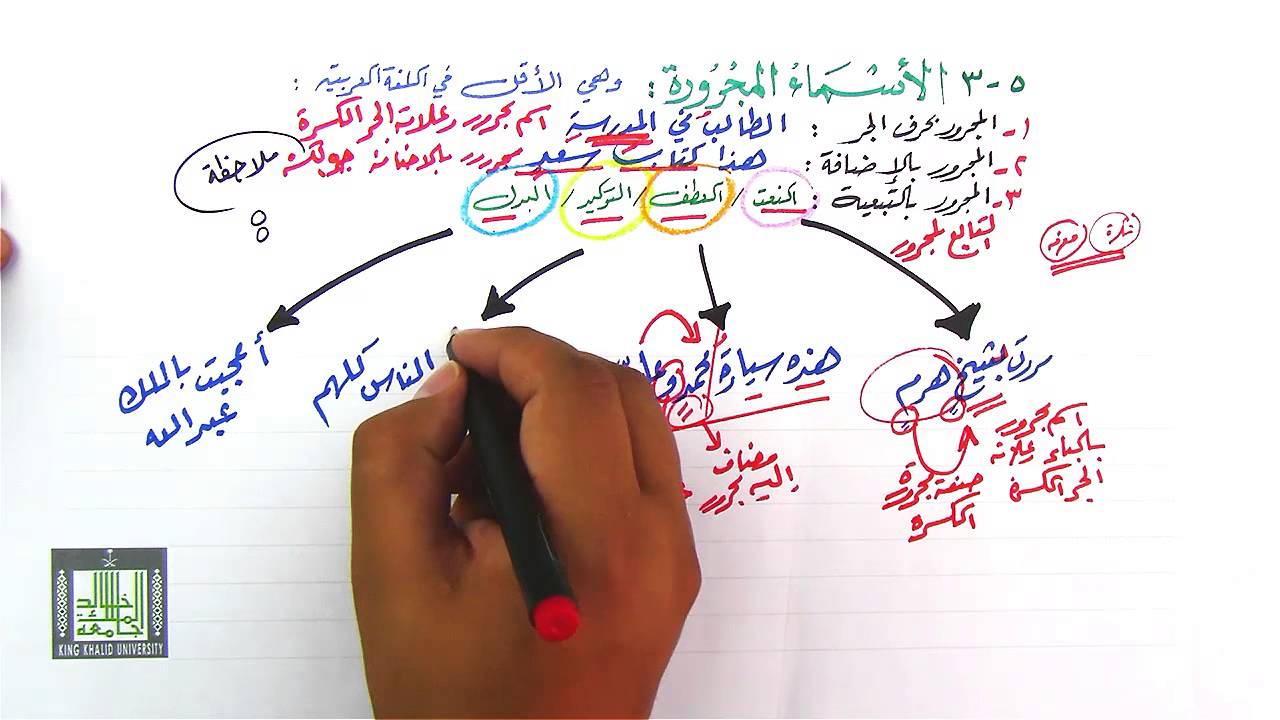 ٥-٣ الأسماءُ المجرُورة: وهي الأقل في اللغة العربية:
١- المجرور بحرف الجر : الطالب في المدرسةِ اسم مجرور وعلامة الجر الكسرة
٢- المجرور بالإضافة: هذا كتابُ سعيدٍ مجرور بالإضافة
ملاحظة
٣- المجرور بالتبعية: النعت / العطف / التوكيد / البدل
التابع لمجرور
نكرة معرفة
مررت بشيخٍ هرمٍ
اسم مجرور بالباء علامة الجر الكسرة
صفة مجرورة الكسرة
هذه سيارةُ محمدٍ و
مضاف إليه مجرور
الناس كلهم
أعجبت بالملك عبدالله
خالد الملك جامعة
KING KHALID UNIVERSITY